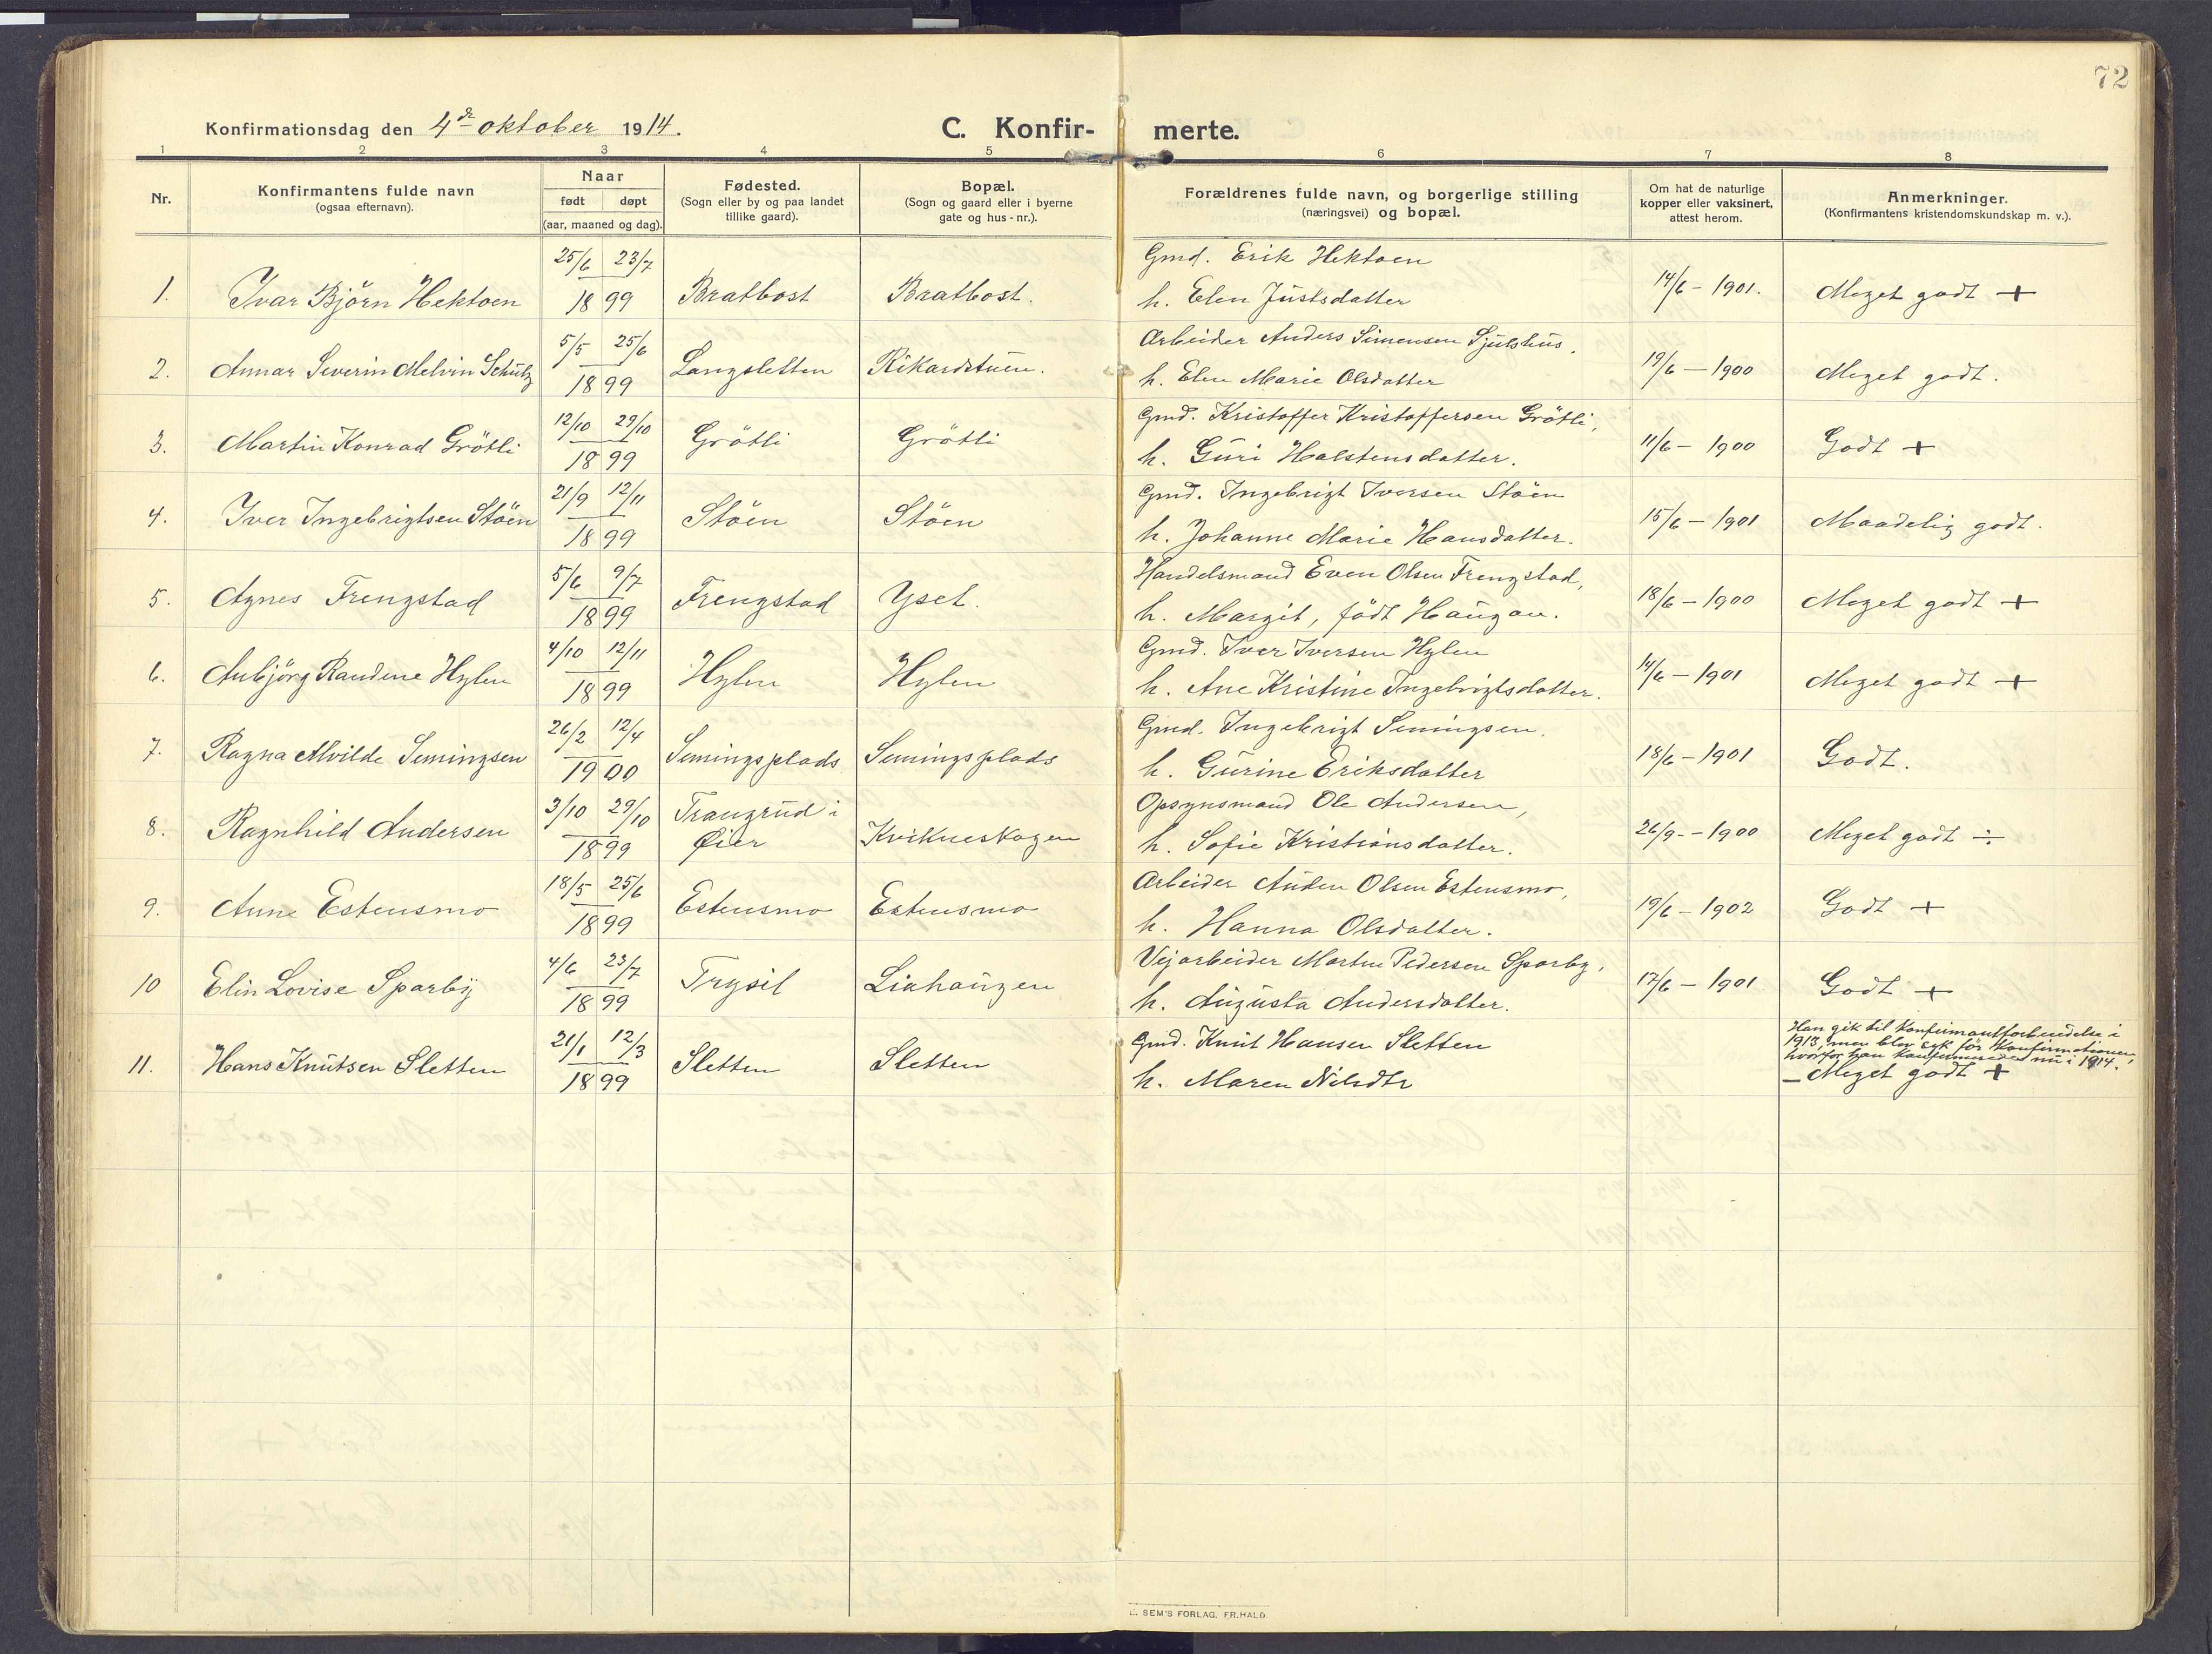 72
Konfirmationsdag den 4de oktober 1914.
C. Konfir- merte.
1 2 3 4 5 6 7 8
Nr.
Konfirmantens fulde navn
(ogsaa efternavn).
Naar
født døpt
(aar, maaned og dag).
Fødested.
(Sogn eller by og paa landet
tillike gaard).
Bopæl.
(Sogn og gaard eller i byerne
gate og hus-nr.).
Forældrenes fulde navn, og borgerlige stilling
(næringsvei) og bopæl.
Om hat de naturlige
kopper eller vaksinert,
attest herom.
Anmerkninger.
(Konfirmantens kristendomskundskap m. v.).
25/6 23/7 Gmd. Erik Hektoen
1. Ivar Björn Hektoen 1899 Bratbost Bratbost. h. Elen Justsdatter 14/6 - 1901. Meget godt +
5/5 25/6 Arbeider Anders Simensen Sjulshus,
2. Annar Severin Melvin Schütz 1899 Langsletten Rikardstuen. h. Elen Marie Olsdatter 19/6 - 1900 Meget godt.
12/10 29/10 Gmd. Kristoffer Kristoffersen Grötli,
3. Martin Konrad Grötli 1899 Grötli Grötli h. Guri Halstensdatter. 11/6 - 1900 Godt +
21/9 12/11 Gmd. Ingebrigt Iversen Stöen
4. Iver Ingebrigtsen Stöen 1899 Stöen Stöen h. Johanne Marie Hansdatter. 15/6 - 1901 Maadelig godt.
5/6 9/7 Handelsmand Even Olsen Frengstad,
5. Agnes Frengstad 1899 Frengstad Yset. h. Margit, født Haugan. 18/6 - 1900 Meget godt +
4/10 12/11 Gmd. Iver Iversen Hylen
6. Anbjörg Randine Hylen 1899 Hylen Hylen h. Ane Kristine Ingebrigtsdatter. 14/6 - 1901 Meget godt +
26/2 12/4 Gmd. Ingebrigt Semingsen,
7. Ragna Alvilde Semingsen 1900 Semingsplads Semingsplads h. Gurine Eriksdatter 18/6 - 1901 Godt.
3/10 29/10 Trangrud i Opsynsmand Ole Andersen,
8. Ragnhild Andersen 1899 Øier Kvikneskogen h. Sofie Kristiansdatter. 26/9 - 1900 Meget godt ÷
18/5 25/6 Arbeider Auden Olsen Estensmo,
9. Anne Estensmo 1899 Estensmo Estensmo h. Hanna Olsdatter. 19/6 - 1902 Godt +
4/6 23/7 Vejarbeider Martin Pedersen Sparby,
10 Elin Lovise Sparby 1899 Trysil Liahaugen h. Augusta Andersdatter. 17/6 - 1901 Godt +
21/1 12/3 Gmd. Knut Hansen Sletten
11. Hans Knutsen Sletten 1899 Sletten Sletten h. Maren Nilsdtr
Han gik til konfirmantforberedelse i
1913, men blev syk för konfirmationen,
hvorfor han konfirmeredes nu i 1914.
- Meget godt +
E. SEM'S FORLAG, FR.HALD